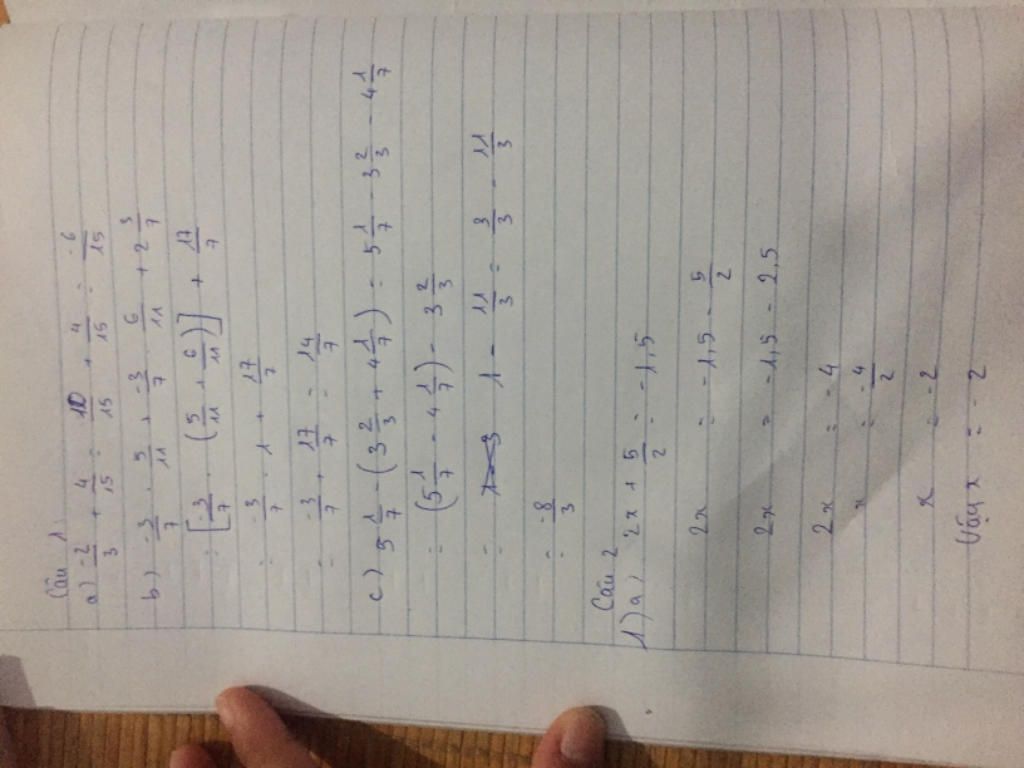 Câu 1:
a) -2/3 + 4/15 = -10/15 + 4/15 = -6/15
b) -3/7 . 5/11 + -3/7 . 6/11 + 2 3/7
= [-3/7 . (5/11 + 6/11)] + 17/7
= -3/7 . 1 + 17/7
= -3/7 + 17/7 = 14/7
c) 5 1/7 - (3 2/3 + 4 1/7) = 5 1/7 - 3 2/3 - 4 1/7
= (5 1/7 - 4 1/7) - 3 2/3
= 1 - 11/3 = 3/3 - 11/3
= -8/3
Câu 2
1) a) 2x + 5/2 = -1,5
2x = -1,5 - 5/2
2x = -1,5 - 2,5
2x = -4
x = -4/2
x = -2
Vậy x = -2